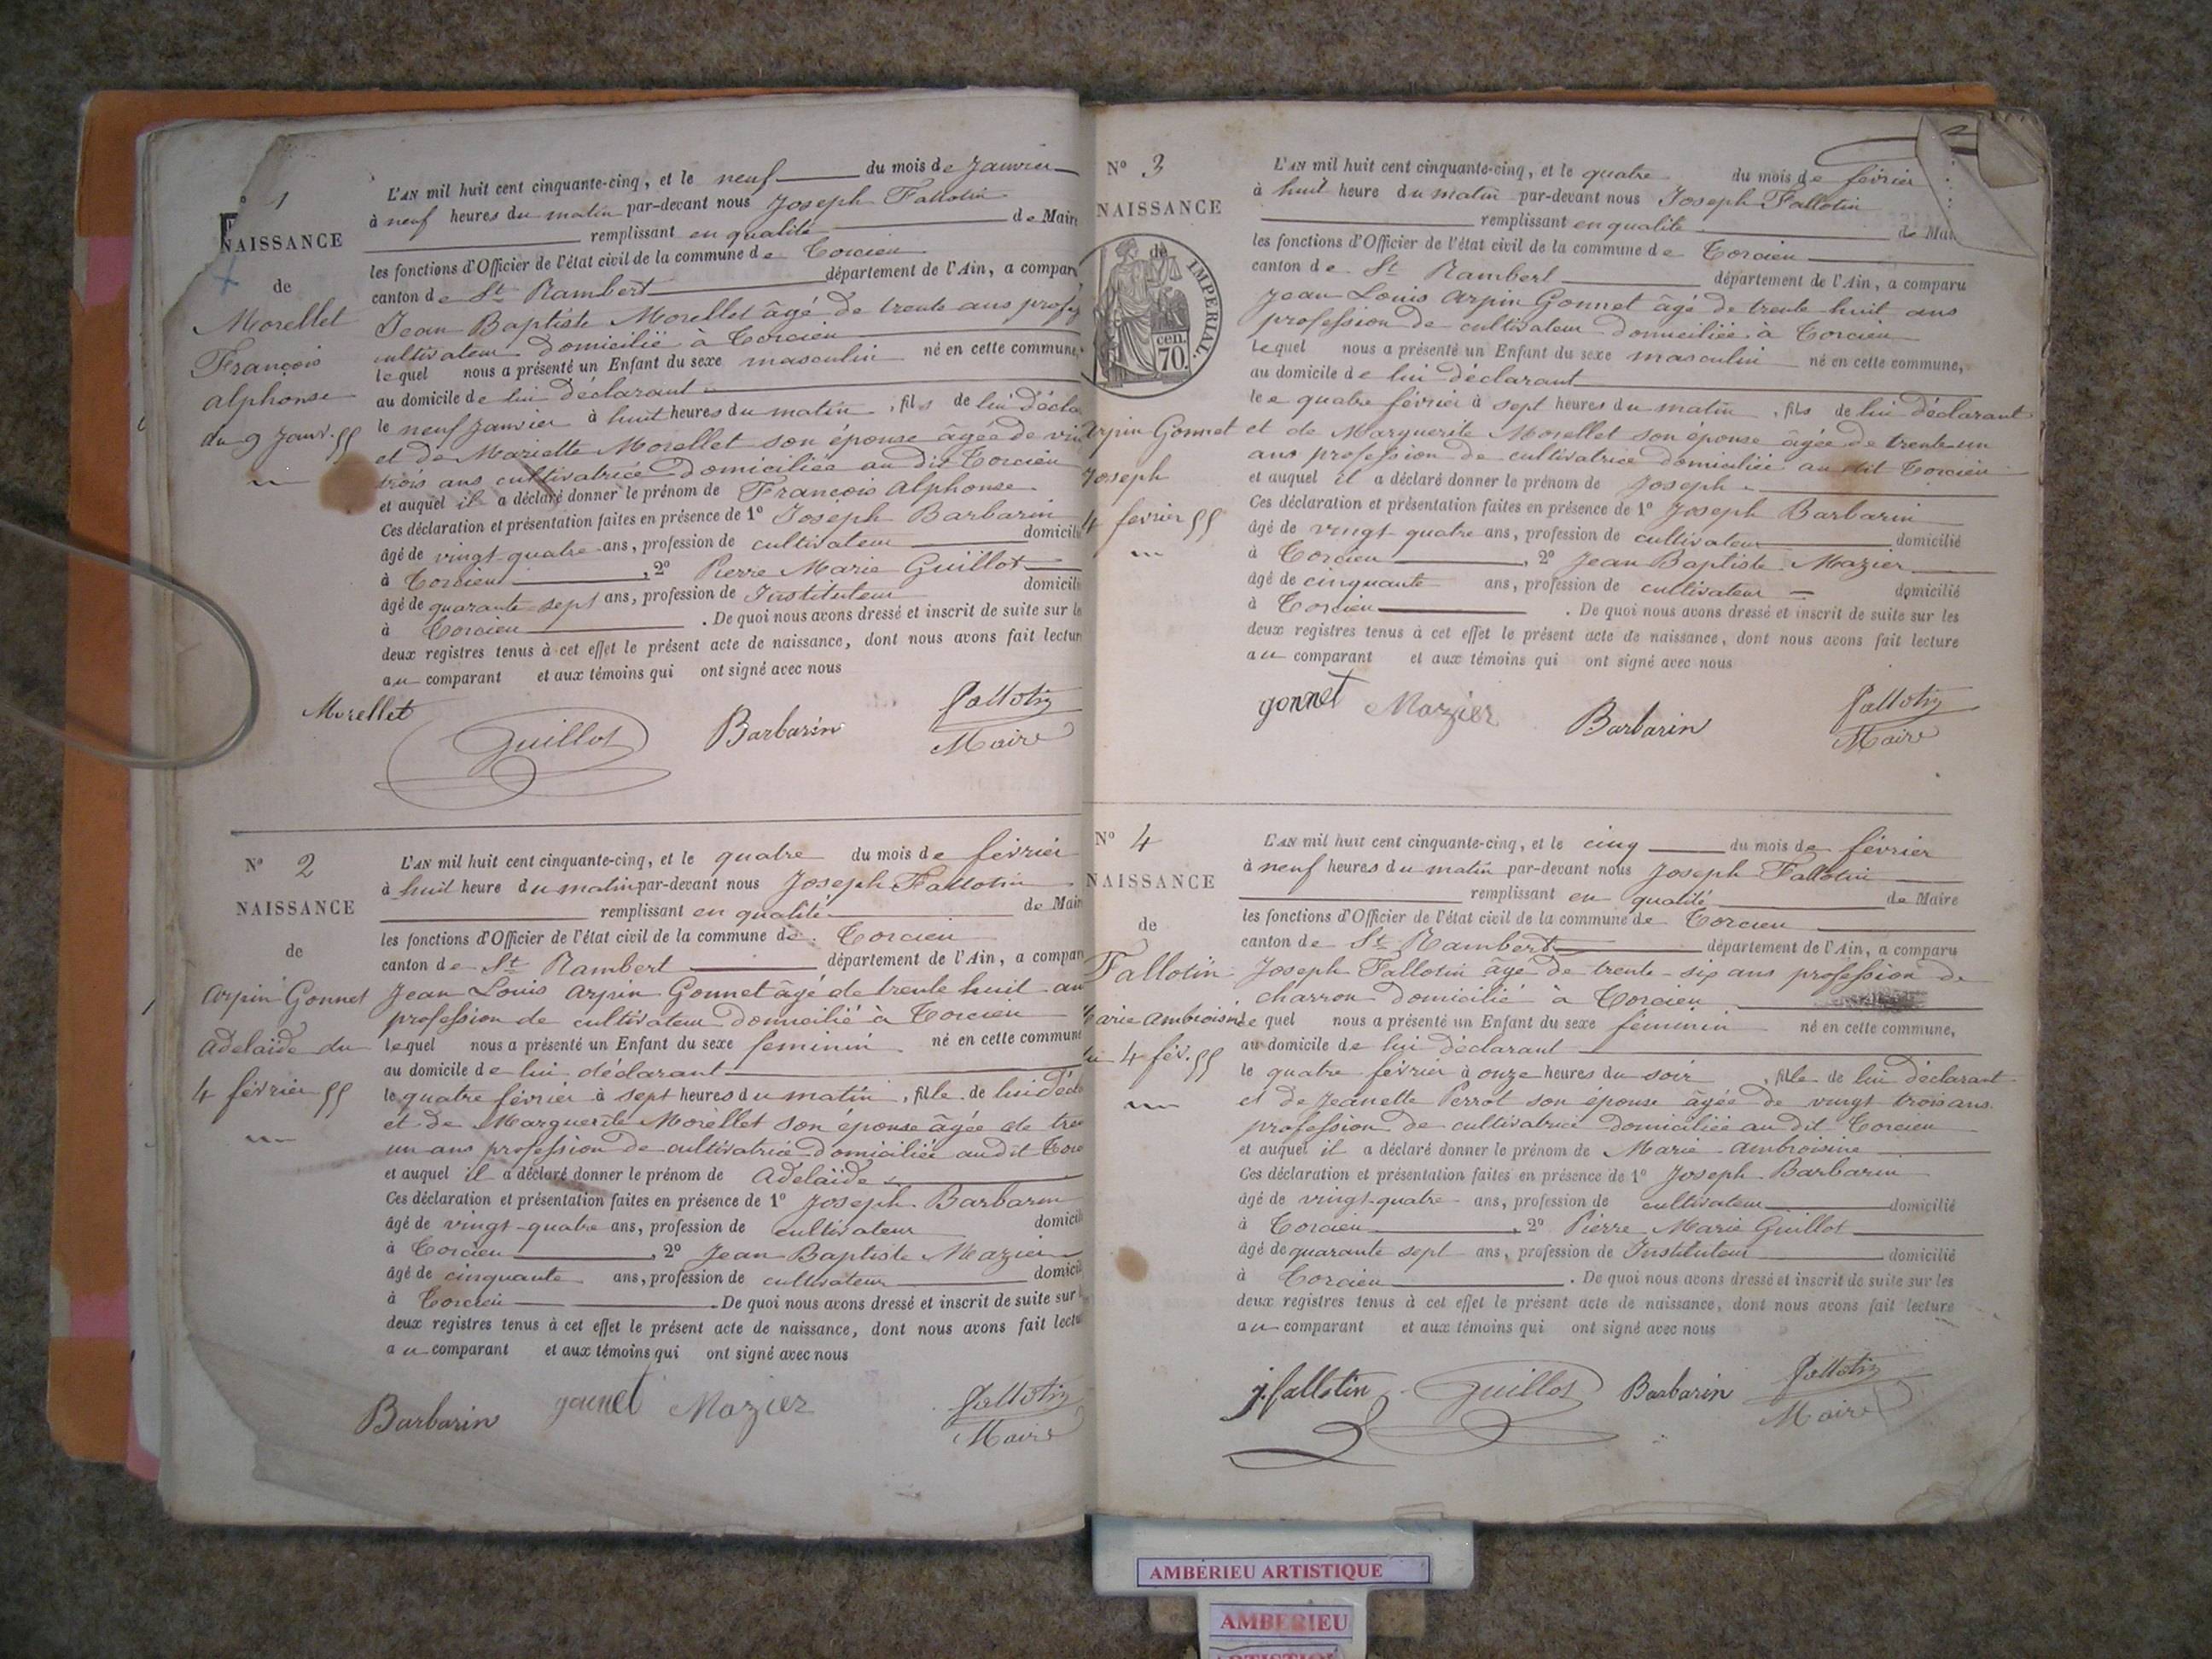 1
NAISSANCE
de
Morellet
François
alphonse
du 9 Janv. 55
L'AN mil huit cent cinquante-cinq, et le neuf du mois de Janvier
à neuf heures du matin par-devant nous Joseph Fallotin
remplissant en qualité de Maire
les fonctions d'Officier de l'état civil de la commune de Torcieu
canton de St Rambert département de l'Ain, a compar
Jean Baptiste Morellet âgé de trente ans profes
cultivateur domicilié à Torcieu
lequel nous a présenté un Enfant du sexe masculin né en cette commune,
au domicile de lui déclarant
le neuf Janvier à huit heures du matin, fils de lui décla
et de Mariette Morellet son épouse âgée de vin
trois ans cultivatrice domiciliée au dit Torcieu
et auquel il a déclaré donner le prénom de François alphonse
Ces déclaration et présentation faites en présence de 1° Joseph Barbarin
âgé de vingt-quatre ans, profession de cultivateur domicilié
à Torcieu, 2° Pierre Marie Guillot
âgé de quarante-sept ans, profession de Instituteur domicilié
à Torcieu. De quoi nous avons dressé et inscrit de suite sur le
deux registres tenus à cet effet le présent acte de naissance, dont nous avons fait lectur
au comparant et aux témoins qui ont signé avec nous
Morellet Guillot Barbarin Fallotin
Maire
N° 2
NAISSANCE
de
Arpin Gonnet
adelaïde du
4 février 55
L'AN mil huit cent cinquante-cinq, et le quatre du mois de février
à huit heure du matin par-devant nous Joseph Fallotin
remplissant en qualité de Maire
les fonctions d'Officier de l'état civil de la commune de Torcieu
canton de St Rambert département de l'Ain, a compar
Jean Louis arpin Gonnet âgé de trente huit an
profession de cultivateur domicilié à Torcieu
lequel nous a présenté un Enfant du sexe feminin né en cette commune
au domicile de lui déclarant
le quatre février à sept heures du matin, fille de lui décla
et de Marguerite Morellet son épouse âgée de tren
un ans profession de cultivatrice domiciliée au dit Torc
et auquel il a déclaré donner le prénom de adelaïde
Ces déclaration et présentation faites en présence de 1° Joseph Barbarin
âgé de vingt-quatre ans, profession de cultivateur domicilié
à Torcieu, 2° Jean Baptiste Mazier
âgé de cinquante ans, profession de cultivateur domicilié
à Torcieu. De quoi nous avons dressé et inscrit de suite sur l
deux registres tenus à cet effet le présent acte de naissance, dont nous avons fait lectu
au comparant et aux témoins qui ont signé avec nous
Barbarin gonnet Mazier Fallotin
Maire
2
N° 3
NAISSANCE
de
IMPÉRIAL.
cen.
70.
Arpin Gonnet
Joseph
4 fevrier 55
L'AN mil huit cent cinquante-cinq, et le quatre du mois de février
à huit heure du matin par-devant nous Joseph Fallotin
remplissant en qualité de Mai
les fonctions d'Officier de l'état civil de la commune de Torcieu
canton de St Rambert département de l'Ain, a comparu
Jean Louis arpin Gonnet âgé de trente huit ans
profession de cultivateur domiciliée à Torcieu
lequel nous a présenté un Enfant du sexe masculin né en cette commune,
au domicile de lui déclarant
le quatre février à sept heures du matin, fils de lui déclarant
et de Marguerite Morellet son épouse âgée de trente un
ans profession de cultivatrice domiciliée au dit Torcieu
et auquel il a déclaré donner le prénom de Joseph
Ces déclaration et présentation faites en présence de 1° Joseph Barbarin
âgé de vingt-quatre ans, profession de cultivateur domicilié
à Torcieu, 2° Jean Baptiste Mazier
âgé de cinquante ans, profession de cultivateur domicilié
à Torcieu. De quoi nous avons dressé et inscrit de suite sur les
deux registres tenus à cet effet le présent acte de naissance, dont nous avons fait lecture
au comparant et aux témoins qui ont signé avec nous
gonnet Mazier Barbarin Fallotin
Maire
N° 4
NAISSANCE
de
Fallotin
Marie Ambroisine
du 4 fév. 55
L'AN mil huit cent cinquante-cinq, et le cinq du mois de février
à neuf heures du matin par-devant nous Joseph Fallotin
remplissant en qualité de Maire
les fonctions d'Officier de l'état civil de la commune de Torcieu
canton de St Rambert département de l'Ain, a comparu
Joseph Fallotin âgé de trente-six ans profession de
charron domicilié à Torcieu
lequel nous a présenté un Enfant du sexe féminin né en cette commune,
au domicile de lui déclarant
le quatre février à onze heures du soir, fille de lui déclarant
et de Jeanette Perrot son épouse âgée de vingt trois ans
profession de cultivatrice domiciliée au dit Torcieu
et auquel il a déclaré donner le prénom de Marie ambroisine
Ces déclaration et présentation faites en présence de 1° Joseph Barbarin
âgé de vingt-quatre ans, profession de cultivateur domicilié
à Torcieu, 2° Pierre Marie Guillot
âgé de quarante sept ans, profession de Instituteur domicilié
à Torcieu. De quoi nous avons dressé et inscrit de suite sur les
deux registres tenus à cet effet le présent acte de naissance, dont nous avons fait lecture
au comparant et aux témoins qui ont signé avec nous
j. fallotin Guillot Barbarin Fallotin
Maire
AMBÉRIEU ARTISTIQUE
AMBERIEU
ARTISTIQUE